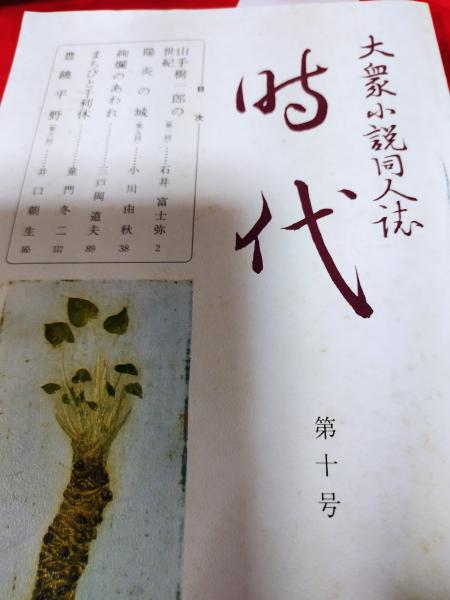 大衆小説同人誌
時代
第十号
目次
山手樹一郎の世紀(第一回)……石井富士弥 2
陽炎の城(第五回)……小川由秋 38
絢爛のあわれ……三戸岡道夫 89
まちびと千利休……童門冬二 112
豊饒平野(第六回)……井口朝生 165